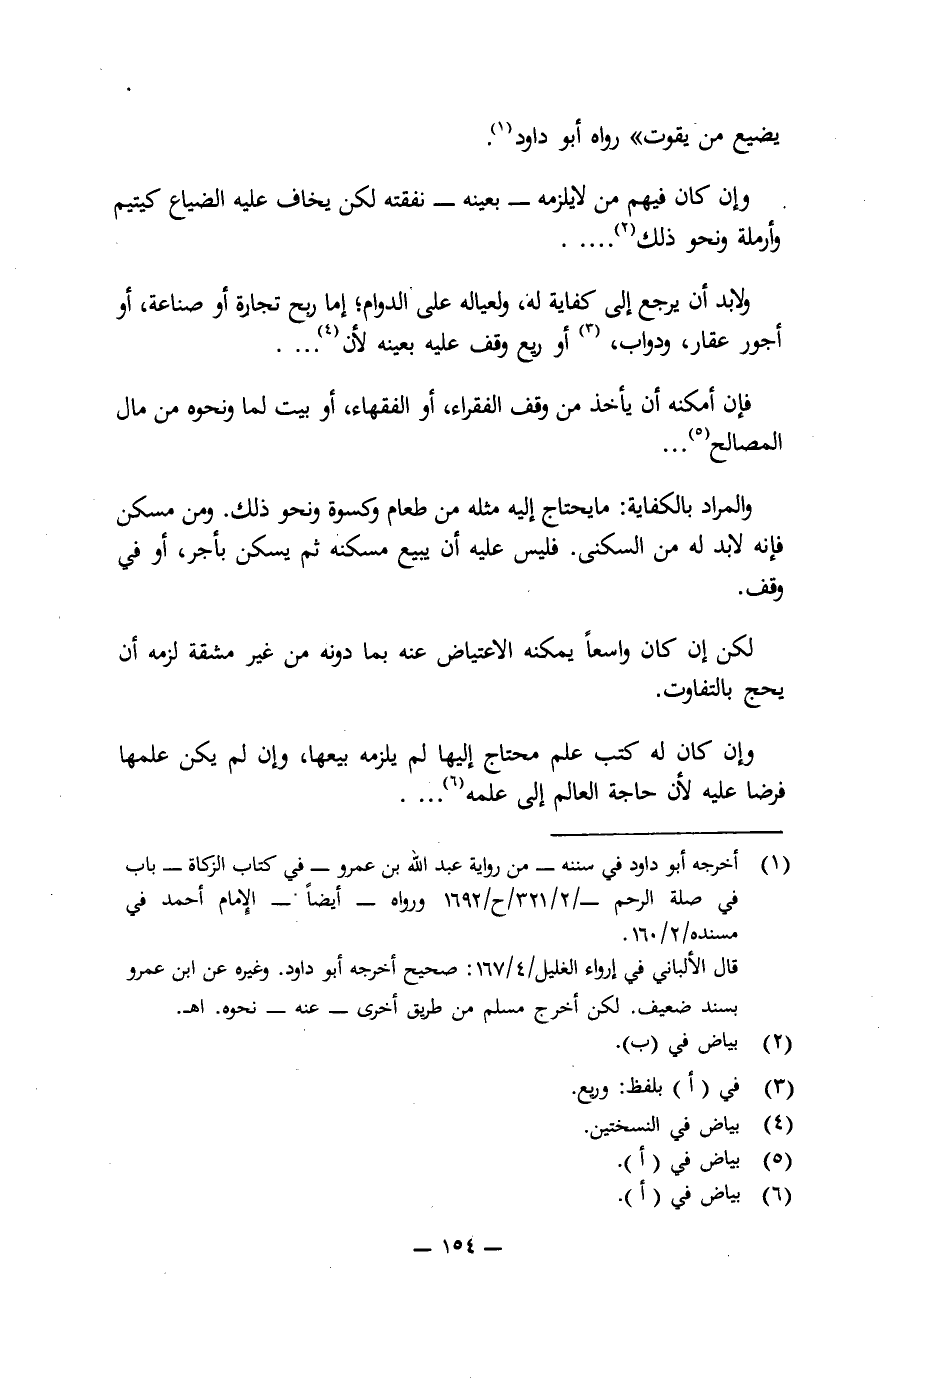 يضيع من يقوت» رواه أبو داود(١).
وإن كان فيهم من لايلزمه ــ بعينه ــ نفقته لكن يخاف عليه الضياع كيتيم
وأرملة ونحو ذلك(٢).... .
ولابد أن يرجع إلى كفاية له، ولعياله على الدوام؛ إما ربح تجارة أو صناعة، أو
أجور عقار، ودواب، (٣) أو ريع وقف عليه بعينه لأن(٤)... .
فإن أمكنه أن يأخذ من وقف الفقراء، أو الفقهاء، أو بيت لما ونحوه من مال
المصالح(٥)...
والمراد بالكفاية: مايحتاج إليه مثله من طعام وكسوة ونحو ذلك. ومن مسكن
فإنه لابد له من السكنى. فليس عليه أن يبيع مسكنه ثم يسكن بأجر، أو في
وقف.
لكن إن كان واسعاً يمكنه الاعتياض عنه بما دونه من غير مشقة لزمه أن
يحج بالتفاوت.
وإن كان له كتب علم محتاج إليها لم يلزمه بيعها، وإن لم يكن علمها
فرضا عليه لأن حاجة العالم إلى علمه(٦)... .
(١) أخرجه أبو داود في سننه ــ من رواية عبد الله بن عمرو ــ في كتاب الزكاة ــ باب
في صلة الرحم ــ/٣٢١/٢/ح/١٦٩٢ ورواه ــ أيضاً ــ الإمام أحمد في
مسنده/١٦٠/٢.
قال الألباني في إرواء الغليل/١٦٧/٤: صحيح أخرجه أبو داود. وغيره عن ابن عمرو
بسند ضعيف. لكن أخرج مسلم من طريق أخرى ــ عنه ــ نحوه. اهـ.
(٢) بياض في (ب).
(٣) في ( أ ) بلفظ: وريع.
(٤) بياض في النسختين.
(٥) بياض في ( أ ).
(٦) بياض في ( أ ).
ــ ١٥٤ ــ